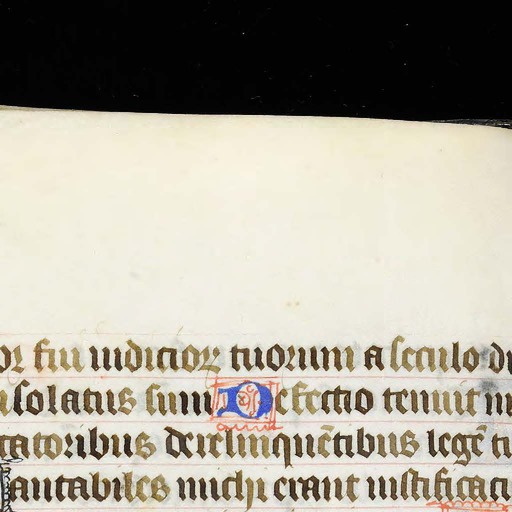 or fui iudicioꝝ tuorum a seculo d
solatus sum Defectio tenuit m
catoribus derelinquētibus legē tu
antabiles michi erant iustificaci